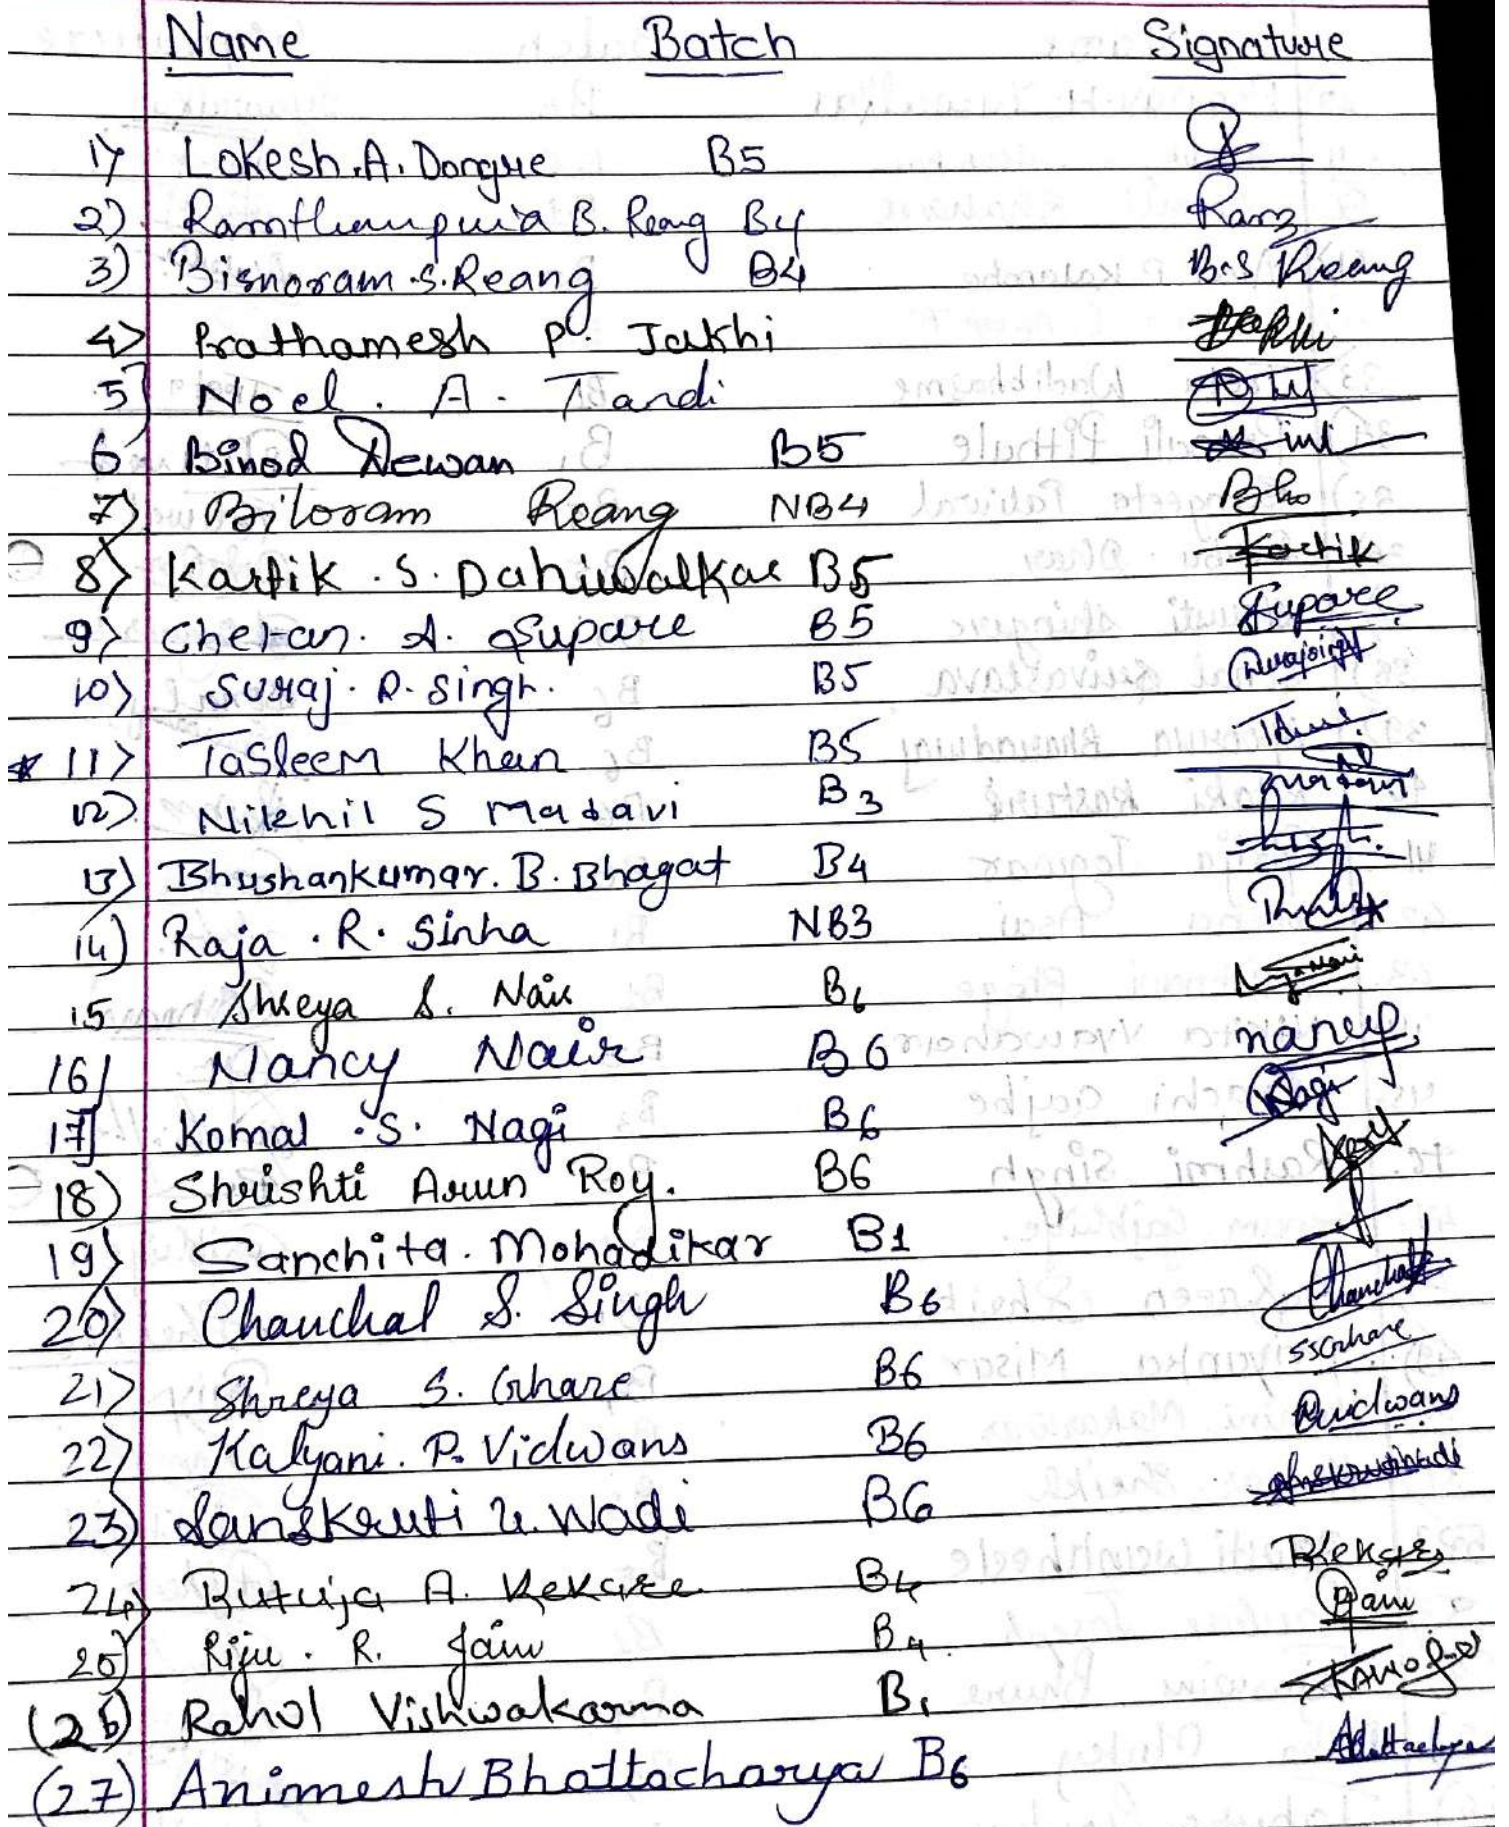 Name Batch Signature
1) Lokesh.A. Dongre B5
2) Ramthanpuia B. Reang B4 Rang
3) Bisnoram .S. Reang B4 B.S Reang
4) Prathamesh P. Jakhi Jakhi
5) Noel. A. Tandi
6 Binod Dewan B5
7) Biloram Reang NB4
8) Kartik . S. Dahiwalkar B5 Kartik
9) Chetan. A. Supare B5 Supare
10) Suraj. R. Singh. B5 Surajsingh
* 11) Tasleem Khan B5
12) Nikhil S Madavi B3 madavi
13) Bhushankumar. B. Bhagat B4
14) Raja . R. Sinha NB3
15 Shreya S. Nair B6
16) Nancy Nair B6 nancy
17] Komal .S. Nagi B6 Nagi
18) Shrishti Arun Roy. B6
19) Sanchita. Mohadikar B1
20) Chanchal S. Singh B6 Chanchal
21) Shreya S. Ghare B6 SSGhare
22) Kalyani. P. Vidwans B6 Pvidwans
23) Sanskruti U. Wadi B6 Sanskrutiwadi
24) Rutuja A. Kekare B4 RKekare
25) Riju . R. Jain B4 RJain
(26) Rahul Vishwakarma B1
(27) Animesh Bhattacharya B6 ABhattacharya